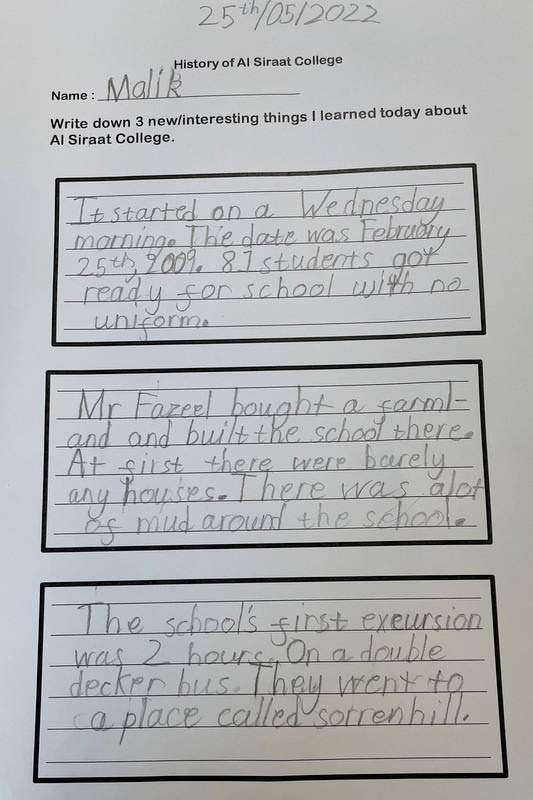 25th/05/2022
History of Al Siraat College
Name : Malik
Write down 3 new/interesting things I learned today about
Al Siraat College.
It started on a Wednesday
morning. The date was February
25th, 2009. 81 students got
ready for school with no
uniform.
Mr Fazeel bought a farml-
and and built the school there.
At first there were barely
any houses. There was alot
of mud around the school.
The school's first excursion
was 2 hours. On a double
decker bus. They went to
a place called sorrenhill.